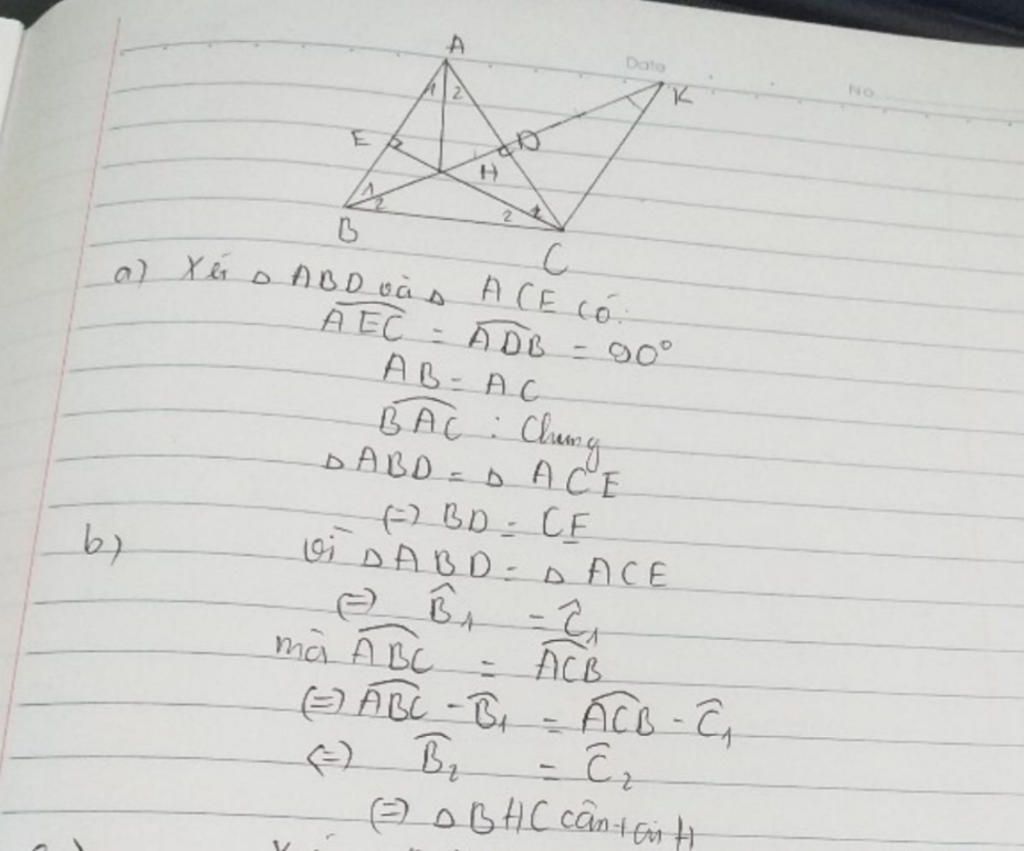 A
Date
No
K
E
D
H
1 2
1 2
2 1
B
C
a) Xét △ ABD và △ ACE có:
AEC = ADB = 90°
AB = AC
BAC : Chung
△ ABD = △ ACE
(=) BD = CE
b) vì △ ABD = △ ACE
(=) B̂1 = Ĉ1
mà ABC = ACB
(=) ABC - B̂1 = ACB - Ĉ1
(=) B̂2 = Ĉ2
(=) △ BHC cân tại H